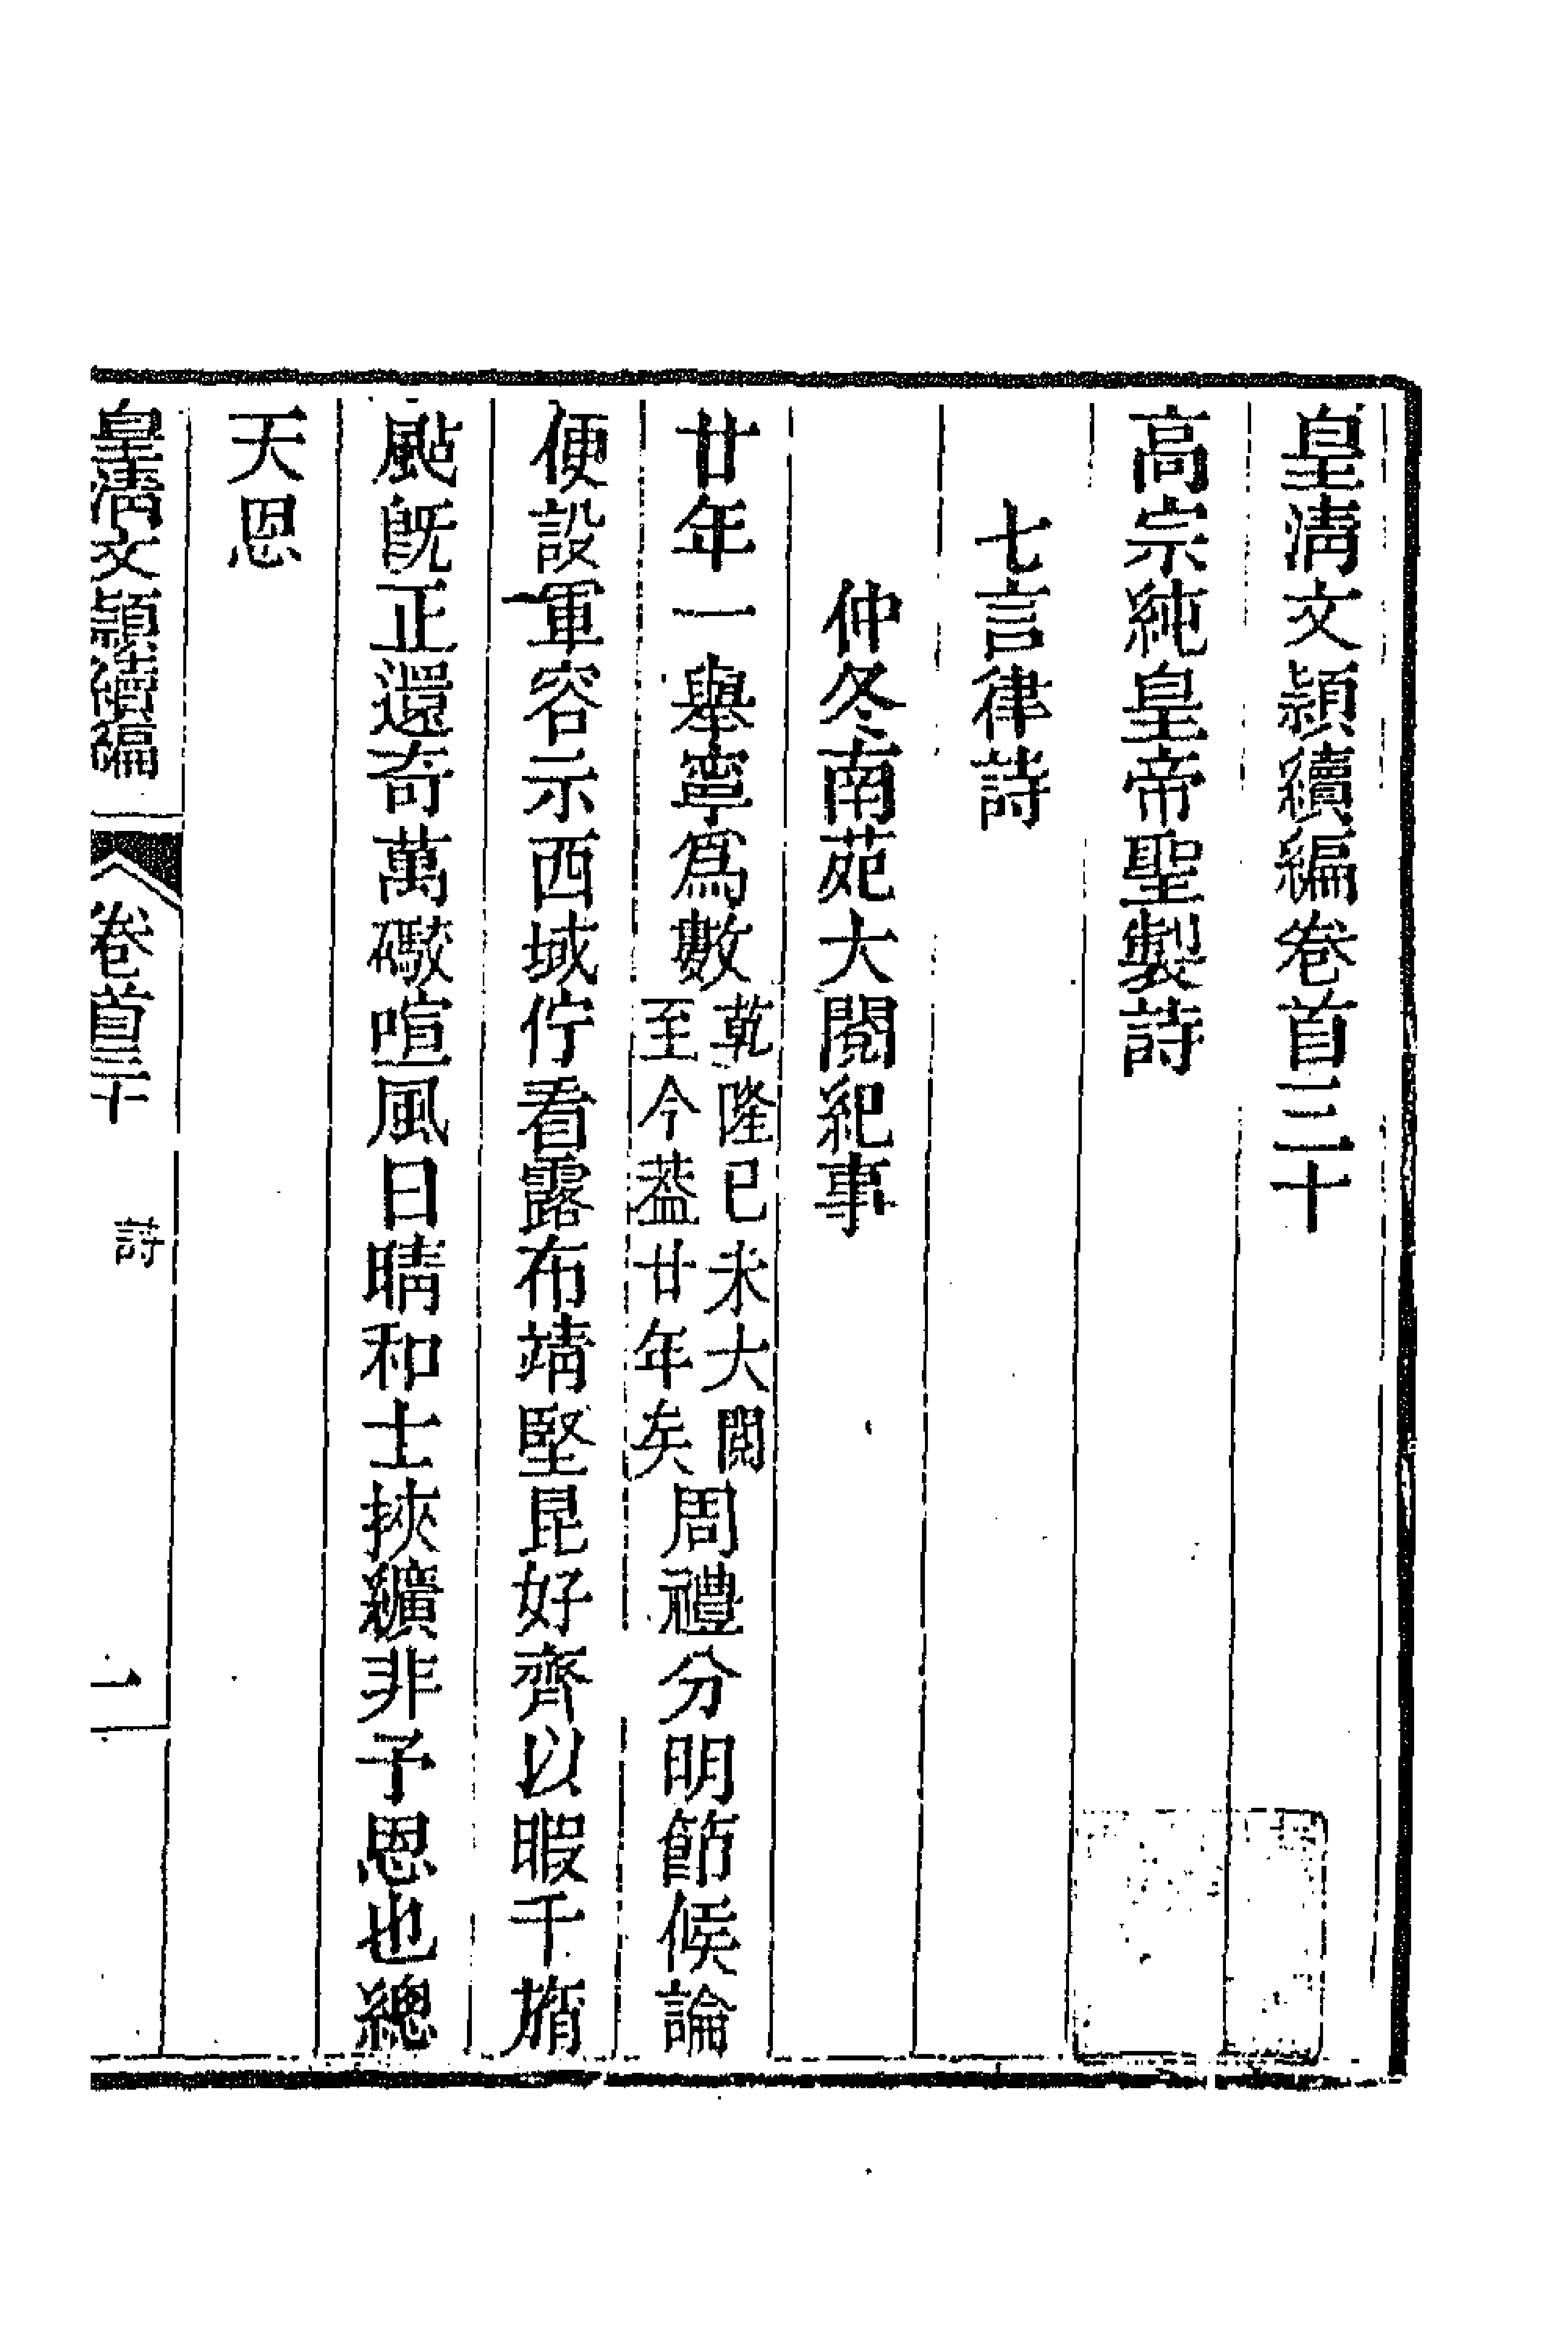 皇淸文頴續編卷首三十
高宗純皇帝聖製詩
七言律詩
仲冬南苑大閱紀事
廿年一舉寧爲數乾隆已未大閱至今葢廿年矣周禮分明節候論
便設軍容示西域佇看露布靖堅昆好齊以暇千旓
颭旣正還奇萬礮喧風日晴和士挾纊非予恩也總
天恩
皇淸文頴續編 卷首三十 詩 一